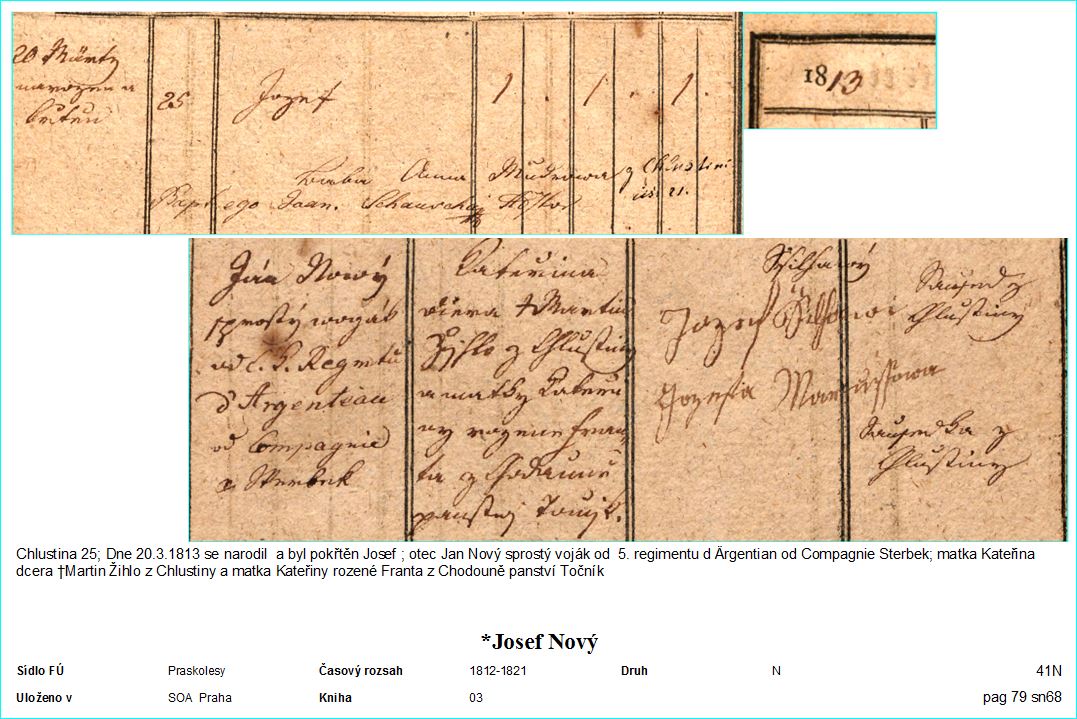 20 Märty
narozen a
křtěn
25
Jozef
1
1
1
1813
baba Anna Mudrowa z Chlustini
čis. 21.
Baptiz. ego Joan.
Ján Nowý
sprostý woják
od c. k. Regmtu
d'Argentiau
od Compagnie
Sterbek
Kateřina
dcera † Martin
Žihlo z Chlustiny
a matky Kateři
ny rozene Fran
ta z Chodaunně
panstwj Točnjk.
Jozef
Jozefa
Saused z
Chlustiny
Sausedka z
Chlustiny
Chlustina 25; Dne 20.3.1813 se narodil a byl pokřtěn Josef ; otec Jan Nový sprostý voják od 5. regimentu d Ärgentian od Compagnie Sterbek; matka Kateřina
dcera †Martin Žihlo z Chlustiny a matka Kateřiny rozené Franta z Chodouně panství Točník
*Josef Nový
Sídlo FÚ Praskolesy Časový rozsah 1812-1821 Druh N 41N
Uloženo v SOA Praha Kniha 03 pag 79 sn68